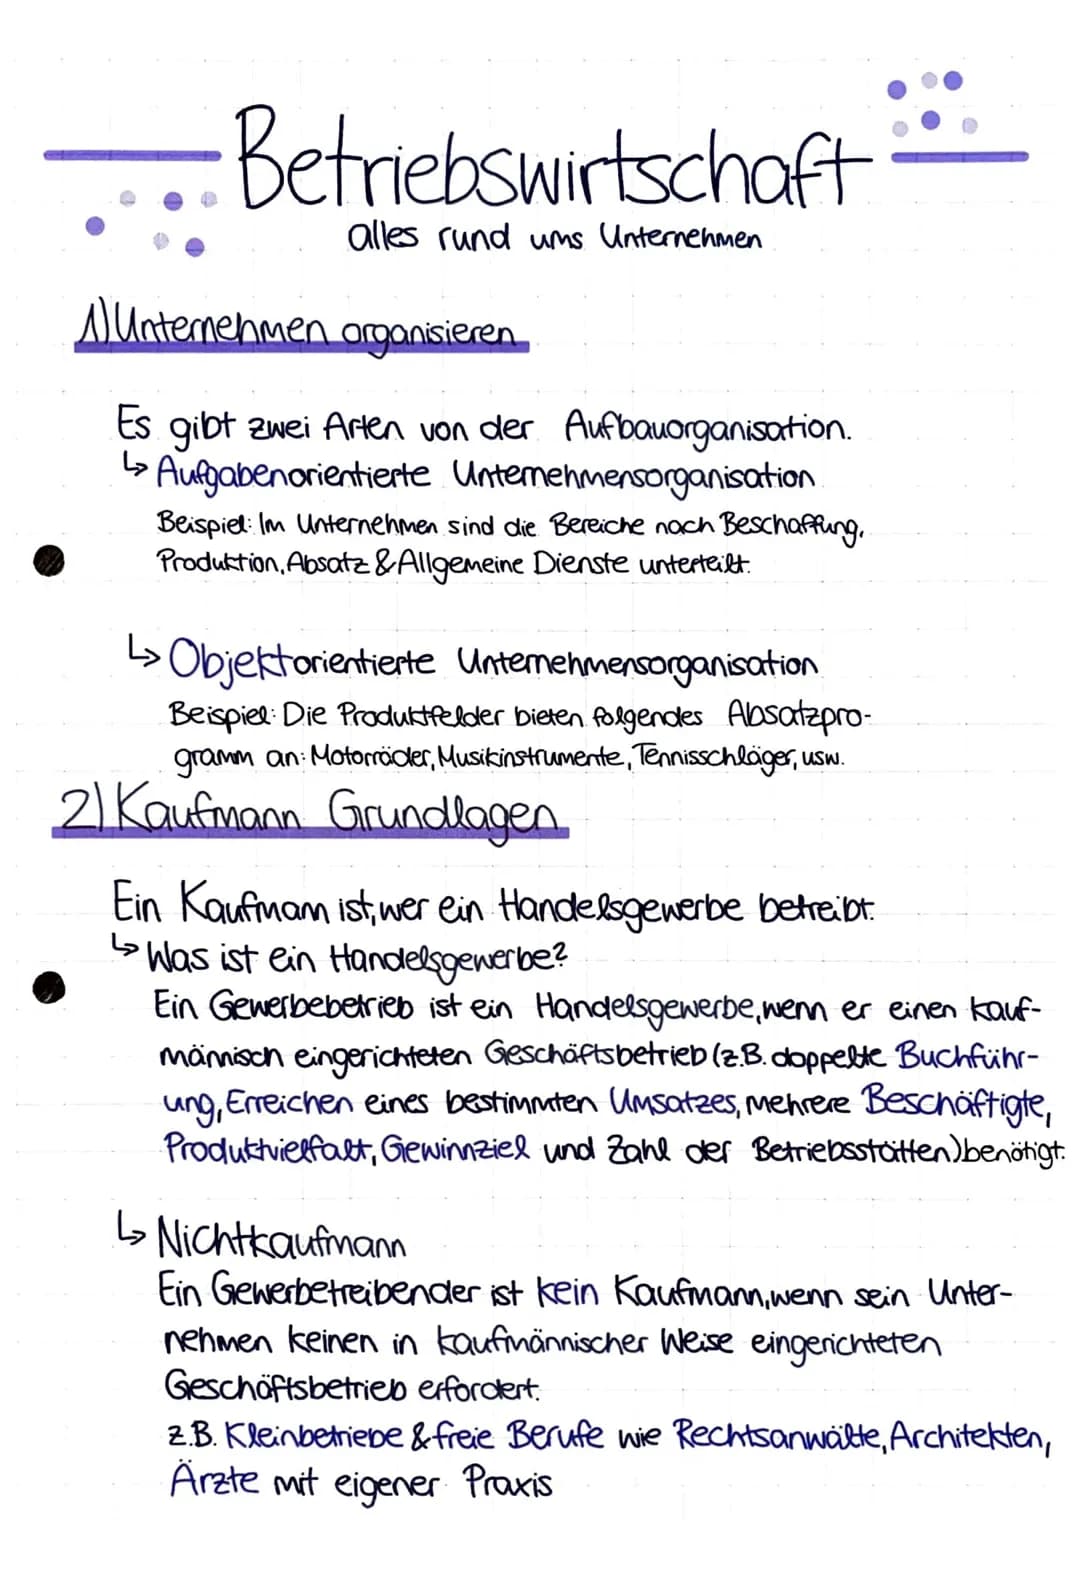 Betriebswirtschaft
alles rund ums Unternehmen
1) Unternehmen organisieren
Es gibt zwei Arten von der Aufbauorganisation.
↳ Aufgabenorientierte Unternehmensorganisation
Beispiel: Im Unternehmen sind die Bereiche nach Beschaffung,
Produktion, Absatz & Allgemeine Dienste unterteilt.
↳ Objektorientierte Unternehmensorganisation
Beispiel: Die Produktfelder bieten folgendes Absatzpro-
gramm an: Motorräder, Musikinstrumente, Tennisschläger, usw.
2) Kaufmann Grundlagen
Ein Kaufmann ist, wer ein Handelsgewerbe betreibt.
↳ Was ist ein Handelsgewerbe?
Ein Gewerbebetrieb ist ein Handelsgewerbe, wenn er einen kauf-
männisch eingerichteten Geschäftsbetrieb (z.B. doppelte Buchführ-
ung, Erreichen eines bestimmten Umsatzes, mehrere Beschäftigte,
Produktvielfalt, Gewinnziel und Zahl der Betriebsstätten) benötigt.
↳ Nichtkaufmann
Ein Gewerbetreibender ist kein Kaufmann, wenn sein Unter-
nehmen keinen in kaufmännischer Weise eingerichteten
Geschäftsbetrieb erfordert.
z.B. Kleinbetriebe & freie Berufe wie Rechtsanwälte, Architekten,
Ärzte mit eigener Praxis